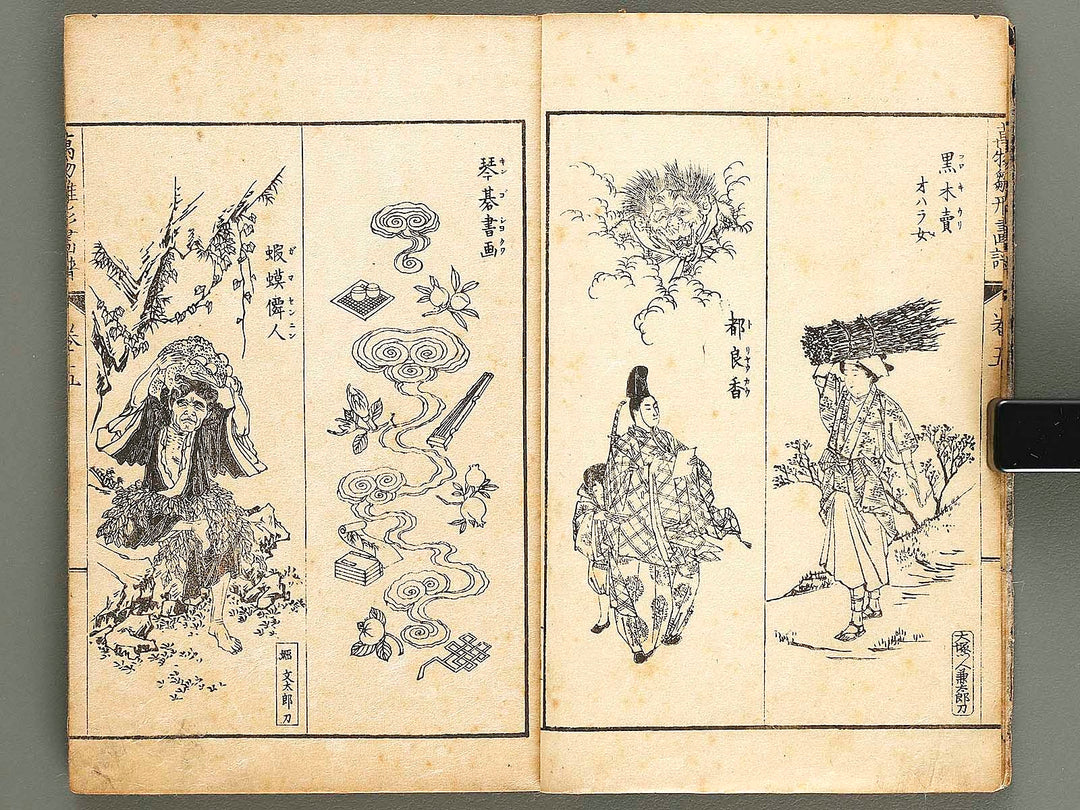 萬物雛形畫譜
卷五
黒木賣
クロキウリ
オハラ女
都良香
トリヤウカウ
兼太郎刀
琴碁書画
キンゴシヨクワ
蝦蟆僊人
ガマセンニン
文太郎刀
萬物雛形畫譜
卷五